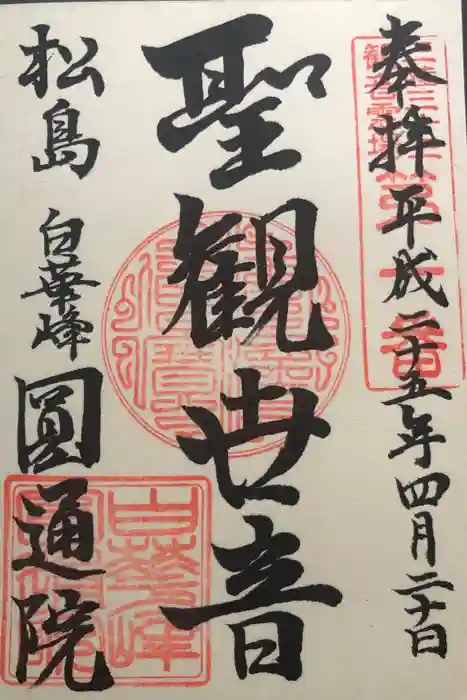 奉拝 平成二十五年四月二十日
聖観世音
松島 白華峰 圓通院